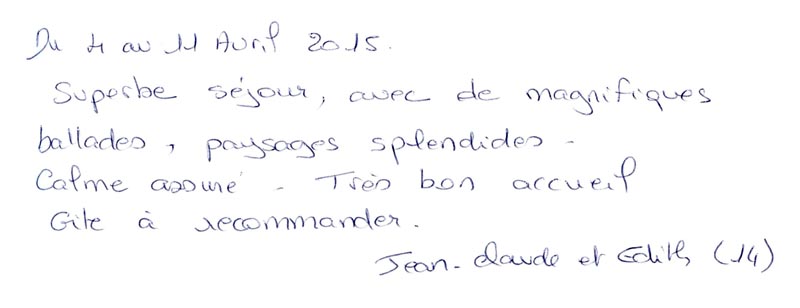 Du 4 au 11 Avril 2015.
Superbe séjour, avec de magnifiques
ballades, paysages splendides -
Calme assuré - Très bon accueil
Gite à recommander.
Jean-Claude et Edith (14)